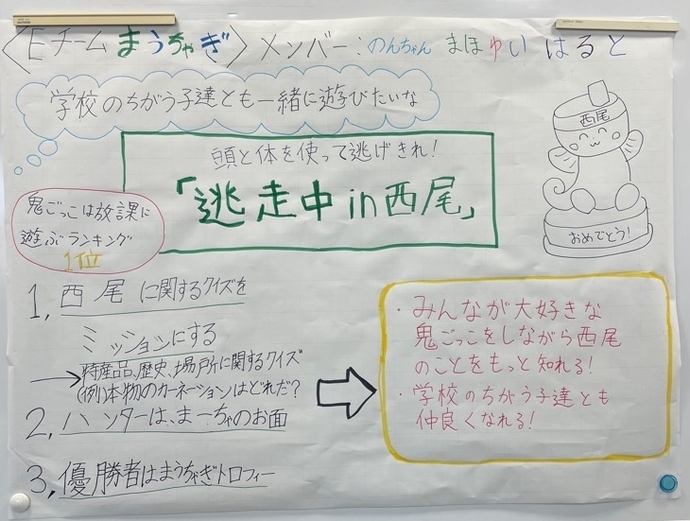 〈Eチーム まうちゃぎ〉メンバー:のんちゃん まほ ゆい はると
学校のちがう子達とも一緒に遊びたいな
頭と体を使って逃げきれ!
「逃走中in西尾」
西尾
おめでとう!
鬼ごっこは放課に
遊ぶランキング
1位
1, 西尾に関するクイズを
ミッションにする
→特産品、歴史、場所に関するクイズ
(例)本物のカーネーションはどれだ?
2, ハンターは、まーちゃのお面
3, 優勝者はまうちゃぎトロフィー
・みんなが大好きな
鬼ごっこをしながら西尾
のことをもっと知れる!
・学校のちがう子達とも
仲良くなれる!